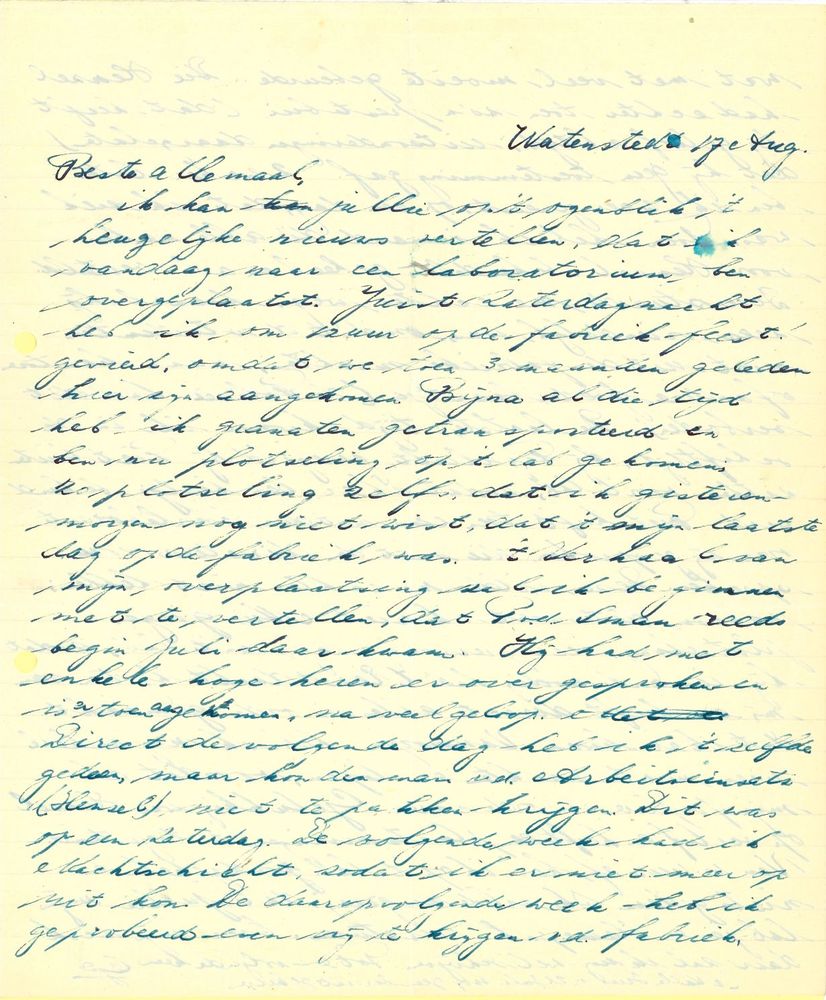 Watenstedt 17 Aug.
Beste allemaal,
ik kan jullie op 't ogenblik 't
heugelijke nieuws vertellen, dat ik
vandaag naar een laboratorium ben
overgeplaatst. Juist Zaterdagnacht
heb ik om 12 uur op de fabriek feest
gevierd, omdat we toen 3 maanden geleden
hier zijn aangekomen. Bijna al die tijd
heb ik granaten getransporteerd en
ben nu plotseling op 't lab gekomen,
zo plotseling zelfs, dat ik gisteren-
morgen nog niet wist, dat 't mijn laatste
dag op de fabriek was. 't Verhaal van
mijn overplaatsing zal ik beginnen
met te vertellen, dat sman reeds
begin Juli daar kwam. Hij had met
enkele hoge heren er over gesproken en
is er toen aangekomen, na veel geloop.
Direct de volgende dag heb ik 't zelfde
gedaan, maar kon den man v.d. Arbeitseinsatz
(Hensel) niet te pakken krijgen. Dit was
op een Zaterdag. De volgende week had ik
Nachtschicht, zodat ik er niet meer op
uit kon. De daaropvolgende week heb ik
geprobeerd even vrij te krijgen v.d. fabriek,